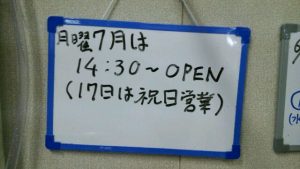 月曜7月は
14:30～OPEN
(17日は祝日営業)